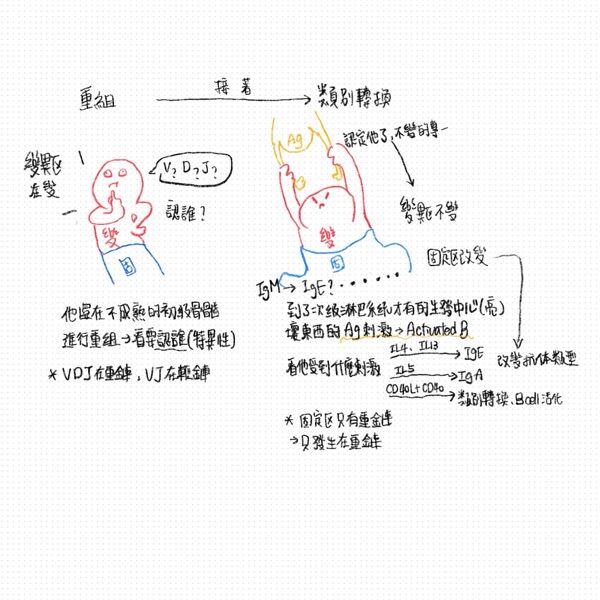 重組
接著
類別轉換
Ag
認定他了,不變的專一
變異區
在變
V? D? J?
認誰?
變
固
變
固
變異區不變
固定區改變
IgM → IgE? . . . . . .
他還在不成熟的初級骨髓
進行重組→看要認誰(特異性)
* VDJ在重鏈,VJ在輕鏈
到了次級淋巴系統才有的生發中心(亮)
壞東西的Ag刺激→Activated B
看他受到什麼刺激
IL4、IL13
IgE
IL5
IgA
CD40L+CD40
類別轉換、B cell活化
改變抗體類型
* 固定區只有重鏈
→只發生在重鏈